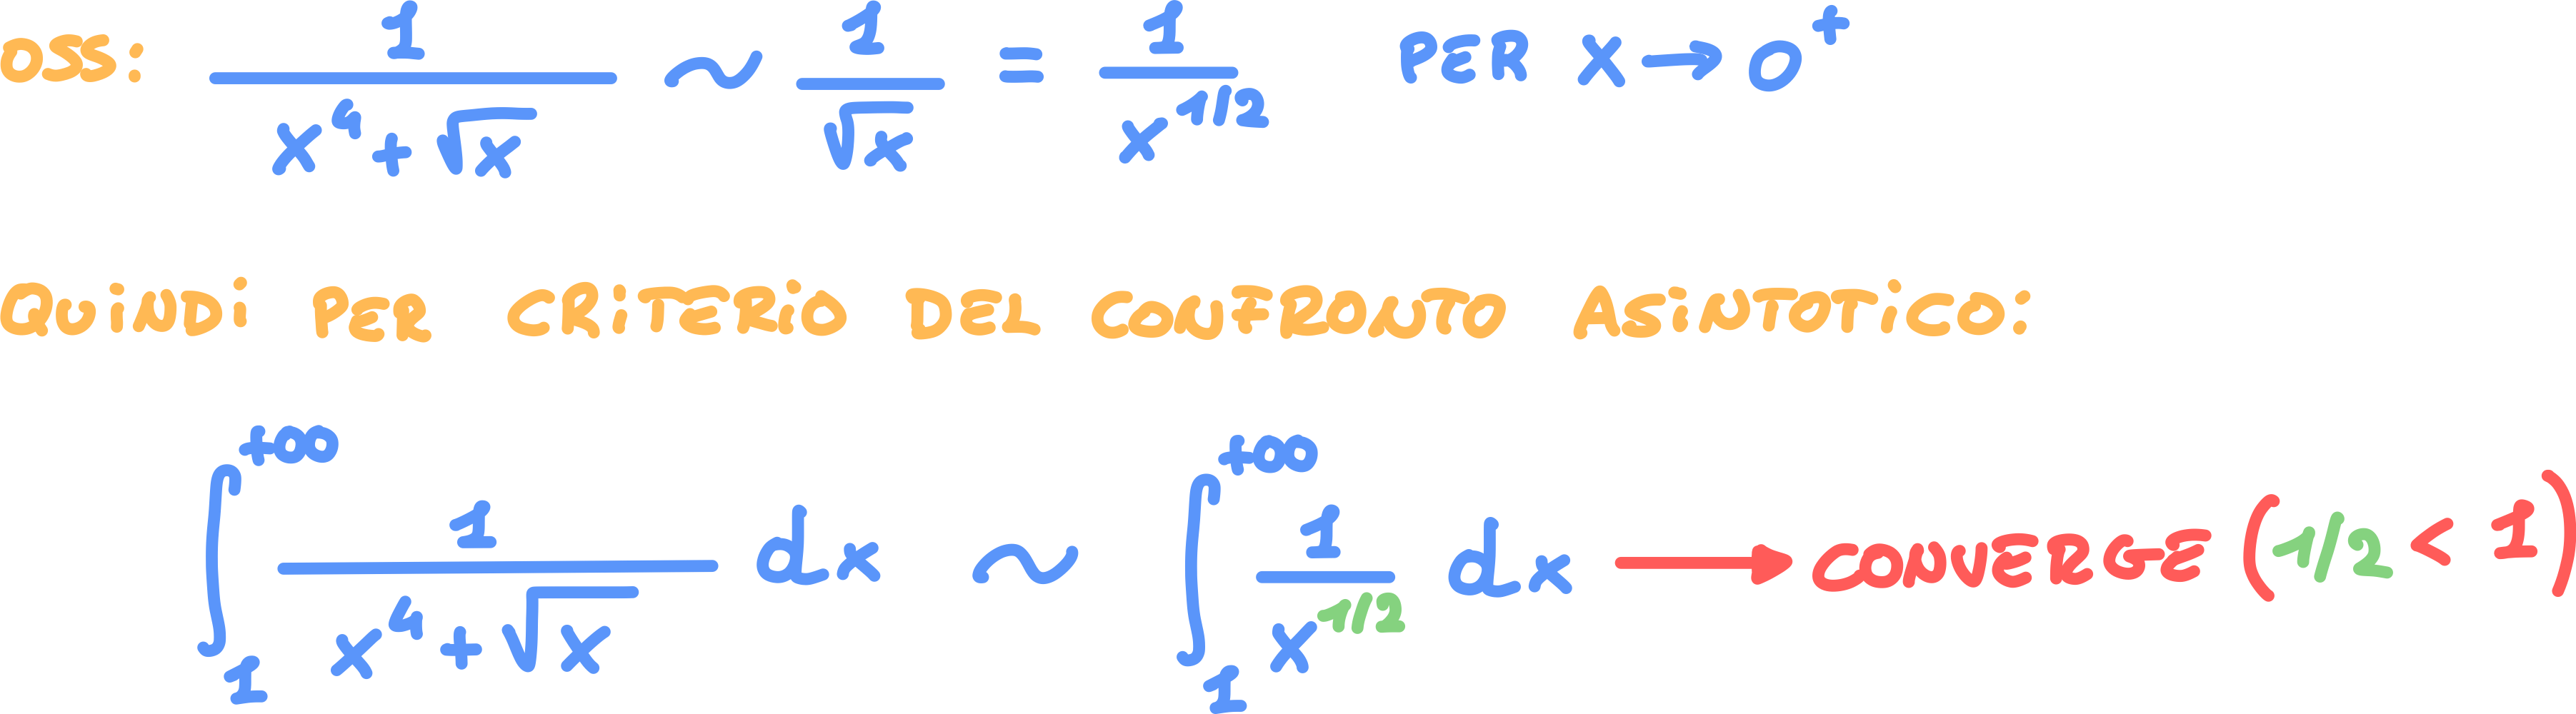 OSS: 1/(x⁴+√x) ~ 1/√x = 1/x^(1/2) PER x→0⁺
QUINDI PER CRITERIO DEL CONFRONTO ASINTOTICO:
∫₁^(+∞) 1/(x⁴+√x) dx ~ ∫₁^(+∞) 1/x^(1/2) dx → CONVERGE (1/2 < 1)